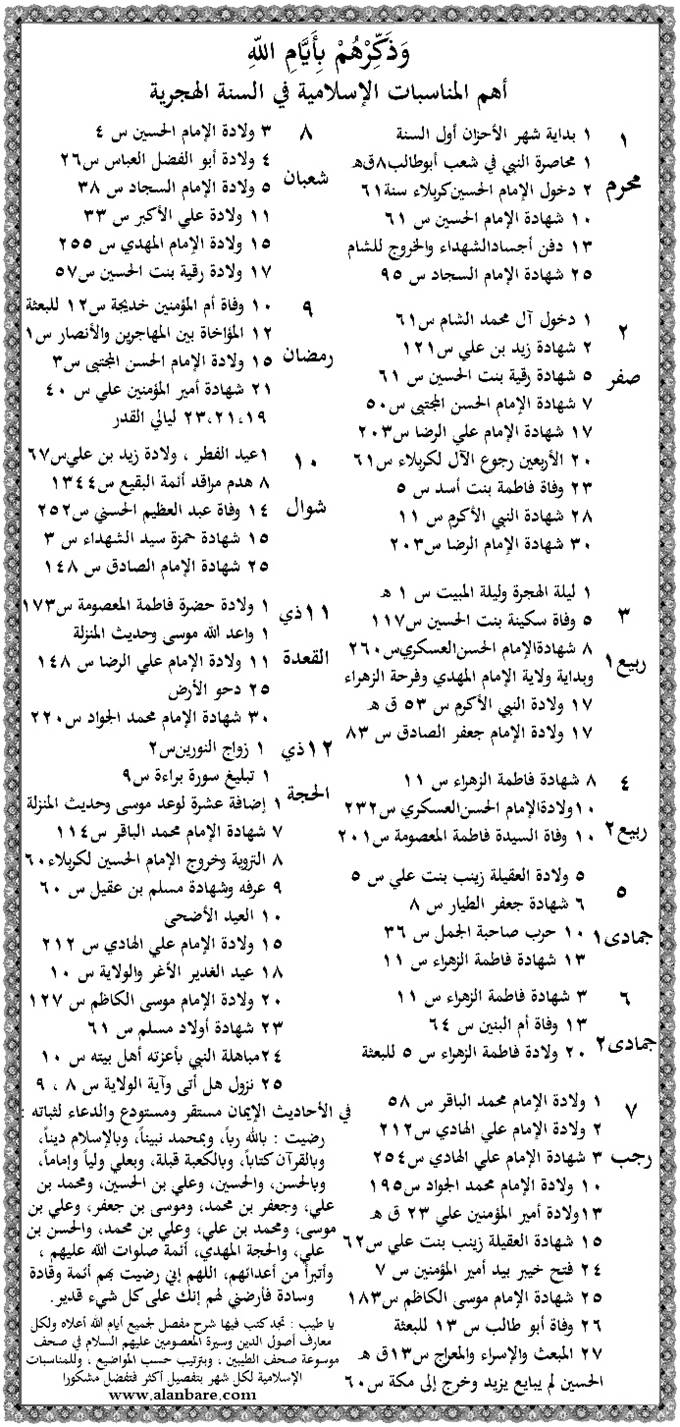 وَذَكِّرْهُمْ بِأَيَّامِ اللَّهِ
أهم المناسبات الإسلامية في السنة الهجرية
١
محرم
١ بداية شهر الأحزان أول السنة
١ محاصرة النبي في شعب أبوطالب٨ق‌ه
٢ دخول الإمام الحسين‌كربلاء سنة٦١
١٠ شهادة الإمام الحسين س ٦١
١٣ دفن أجسادالشهداء والخروج للشام
٢٥ شهادة الإمام السجاد س ٩٥
٢
صفر
١ دخول آل محمد الشام س٦١
٢ شهادة زيد بن علي س١٢١
٥ شهادة رقية بنت الحسين س ٦١
٧ شهادة الإمام الحسن المجتبى س٥٠
١٧ شهادة الإمام علي الرضا س٢٠٣
٢٠ الأربعين رجوع الآل لكربلاء س٦١
٢٣ وفاة فاطمة بنت أسد س ٥
٢٨ شهادة النبي الأكرم س ١١
٣٠ شهادة الإمام الرضا س٢٠٣
٣
ربيع١
١ ليلة الهجرة وليلة المبيت س ١ ه
٥ وفاة سكينة بنت الحسين س١١٧
٨ شهادةالإمام الحسن‌العسكري‌س٢٦٠
وبداية ولاية الإمام المهدي وفرحة الزهراء
١٧ ولادة النبي الأكرم س ٥٣ ق ه
١٧ ولادة الإمام جعفر الصادق س ٨٣
٤
ربيع٢
٨ شهادة فاطمة الزهراء س ١١
١٠ولادةالإمام الحسن‌العسكري س٢٣٢
١٠ وفاة السيدة فاطمة المعصومة س٢٠١
٥
جمادى١
٥ ولادة العقيلة زينب بنت علي س ٥
٦ شهادة جعفر الطيار س ٨
١٠ حرب صاحبة الجمل س ٣٦
١٣ شهادة فاطمة الزهراء س ١١
٦
جمادى٢
٣ شهادة فاطمة الزهراء س ١١
١٣ وفاة أم البنين س ٦٤
٢٠ ولادة فاطمة الزهراء س ٥ للبعثة
٧
رجب
١ ولادة الإمام محمد الباقر س ٥٨
٢ ولادة الإمام علي الهادي س٢١٢
٣ شهادة الإمام علي الهادي س٢٥٤
١٠ ولادة الإمام محمد الجواد س١٩٥
١٣ولادة أمير المؤمنين علي ٢٣ ق ه
١٥ شهادة العقيلة زينب بنت علي س٦٢
٢٤ فتح خيبر بيد أمير المؤمنين س ٧
٢٥ شهادة الإمام موسى الكاظم س١٨٣
٢٦ وفاة أبو طالب س ١٣ للبعثة
٢٧ المبعث والإسراء والمعراج س١٣ق ه
الحسين لم يبايع يزيد وخرج إلى مكة س٦٠
٨
شعبان
٣ ولادة الإمام الحسين س ٤
٤ ولادة أبو الفضل العباس س٢٦
٥ ولادة الإمام السجاد س ٣٨
١١ ولادة علي الأكبر س ٣٣
١٥ ولادة الإمام المهدي س ٢٥٥
١٧ ولادة رقية بنت الحسين س٥٧
٩
رمضان
١٠ وفاة أم المؤمنين خديجة س١٢ للبعثة
١٢ المؤاخاة بين المهاجرين والأنصار س١
١٥ ولادة الإمام الحسن المجتبى س٣
٢١ شهادة أمير المؤمنين علي س ٤٠
٢٣،٢١،١٩ ليالي القدر
١٠
شوال
١عيد الفطر ، ولادة زيد بن علي‌س٦٧
٨ هدم مراقد أئمة البقيع س١٣٤٤
١٤ وفاة عبد العظيم الحسني س٢٥٢
١٥ شهادة حمزة سيد الشهداء س ٣
٢٥ شهادة الإمام الصادق س ١٤٨
١١ذي
القعدة
١ ولادة حضرة فاطمة المعصومة س١٧٣
١ واعد الله موسى وحديث المنزلة
١١ ولادة الإمام علي الرضا س ١٤٨
٢٥ دحو الأرض
٣٠ شهادة الإمام محمد الجواد س٢٢٠
١٢ذي
الحجة
١ زواج النورين‌س٢
١ تبليغ سورة براءة س٩
١ إضافة عشرة لوعد موسى وحديث المنزلة
٧ شهادة الإمام محمد الباقر س١١٤
٨ التروية وخروج الإمام الحسين لكربلاء٦٠
٩ عرفه وشهادة مسلم بن عقيل س ٦٠
١٠ العيد الأضحى
١٥ ولادة الإمام علي الهادي س ٢١٢
١٨ عيد الغدير الأغر والولاية س ١٠
٢٠ ولادة الإمام موسى الكاظم س ١٢٧
٢٣ شهادة أولاد مسلم س ٦١
٢٤مباهلة النبي بأعزته أهل بيته س ١٠
٢٥ نزول هل أتى وآية الولاية س ٨ ، ٩
في الأحاديث الإيمان مستقر ومستودع والدعاء لثباته :
رضيت : بالله رباً، وبمحمد نبيناً، وبالإسلام ديناً،
وبالقرآن كتاباً، وبالكعبة قبلة، وبعلي ولياً وإماماً،
وبالحسن، والحسين، وعلي بن الحسين، ومحمد بن
علي، وجعفر بن محمد، وموسى بن جعفر، وعلي بن
موسى، ومحمد بن علي، وعلي بن محمد، والحسن بن
علي، والحجة المهدي، أئمة صلوات الله عليهم ،
وأتبرأ من أعدائهم، اللهم إني رضيت بهم أئمة وقادة
وسادة فأرضني لهم إنك على كل شيء قدير.
يا طيب : تجد كتب فيها شرح مفصل لجميع أيام الله أعلاه ولكل
معارف أصول الدين وسيرة المعصومين عليهم السلام في صحف
موسوعة صحف الطيبين ، وبترتيب حسب المواضيع ، وللمناسبات
الإسلامية لكل شهر بتفصيل أكثر فتفضل مشكورا
www.alanbare.com